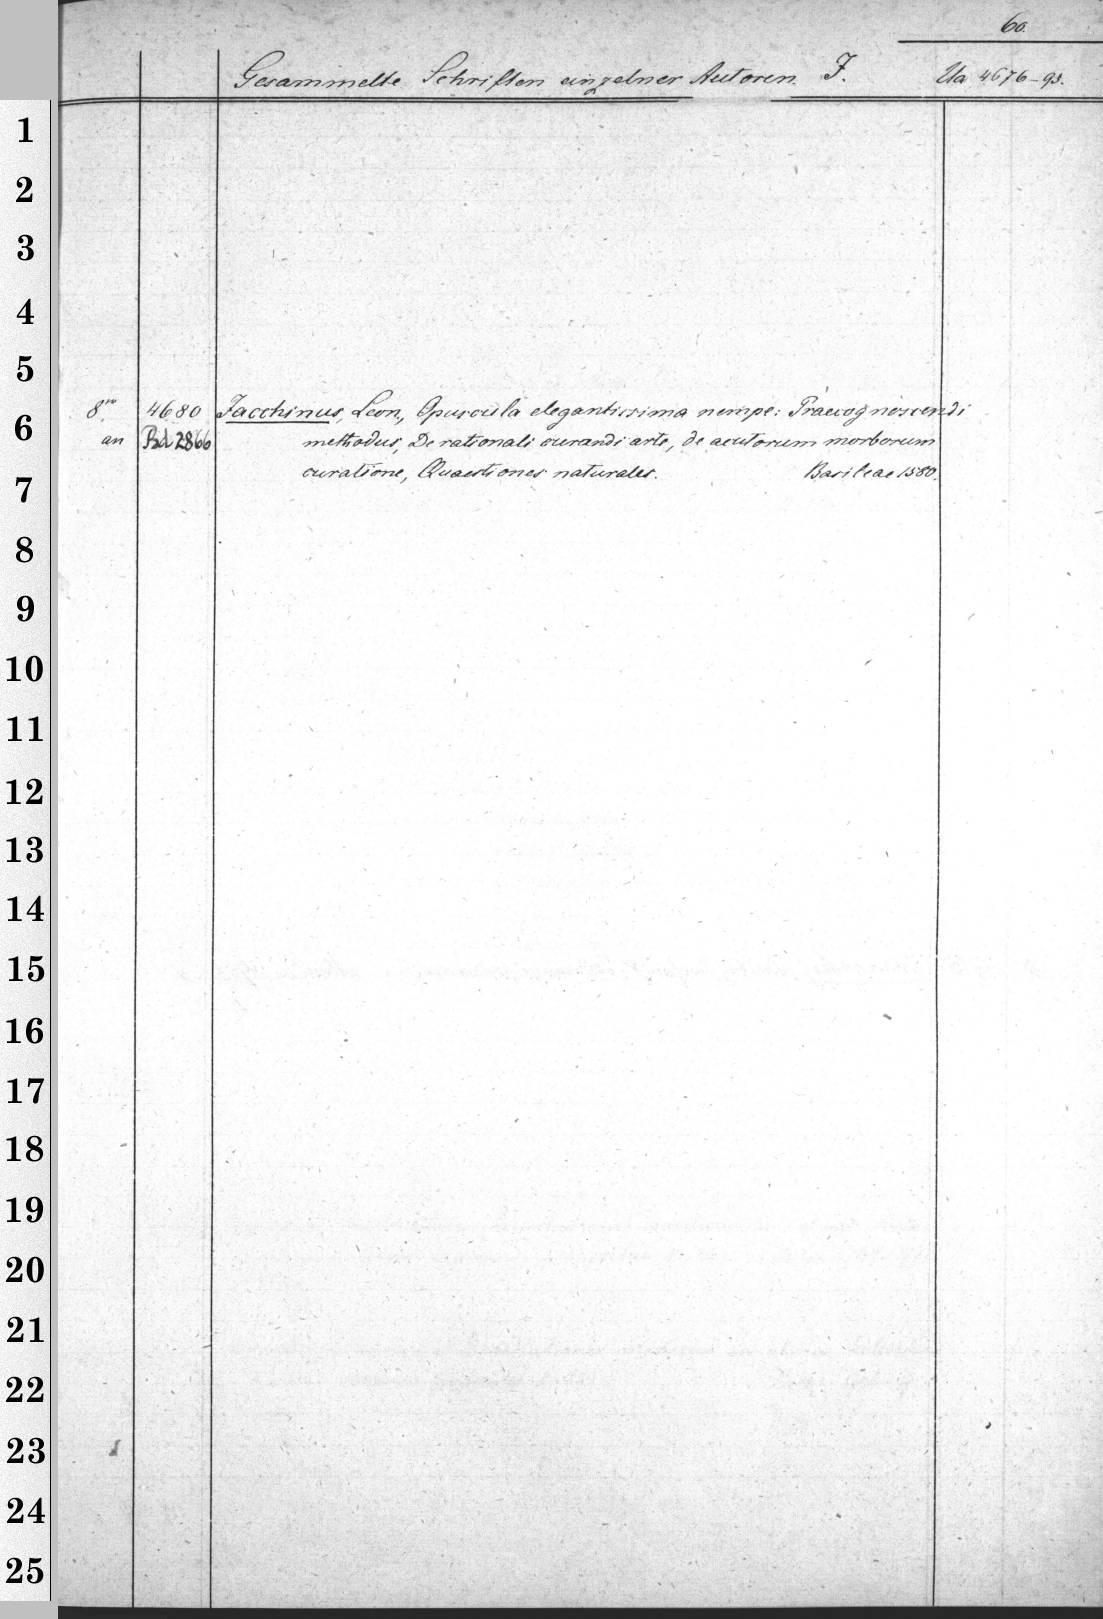 60.
Gesammelte Schriften einzelner Autoren. J. Ua 4676-93.
1
2
3
4
5
8vo 4680 Jacchinus, Leon., Opuscula elegantissima nempe: Praecognoscendi
6
an Bd 2866 methodus, De rationali curandi arte, de acutorum morborum
curatione, Quaestiones naturales. Basileae 1580.
7
8
9
10
11
12
13
14
15
16
17
18
19
20
21
22
23
24
25